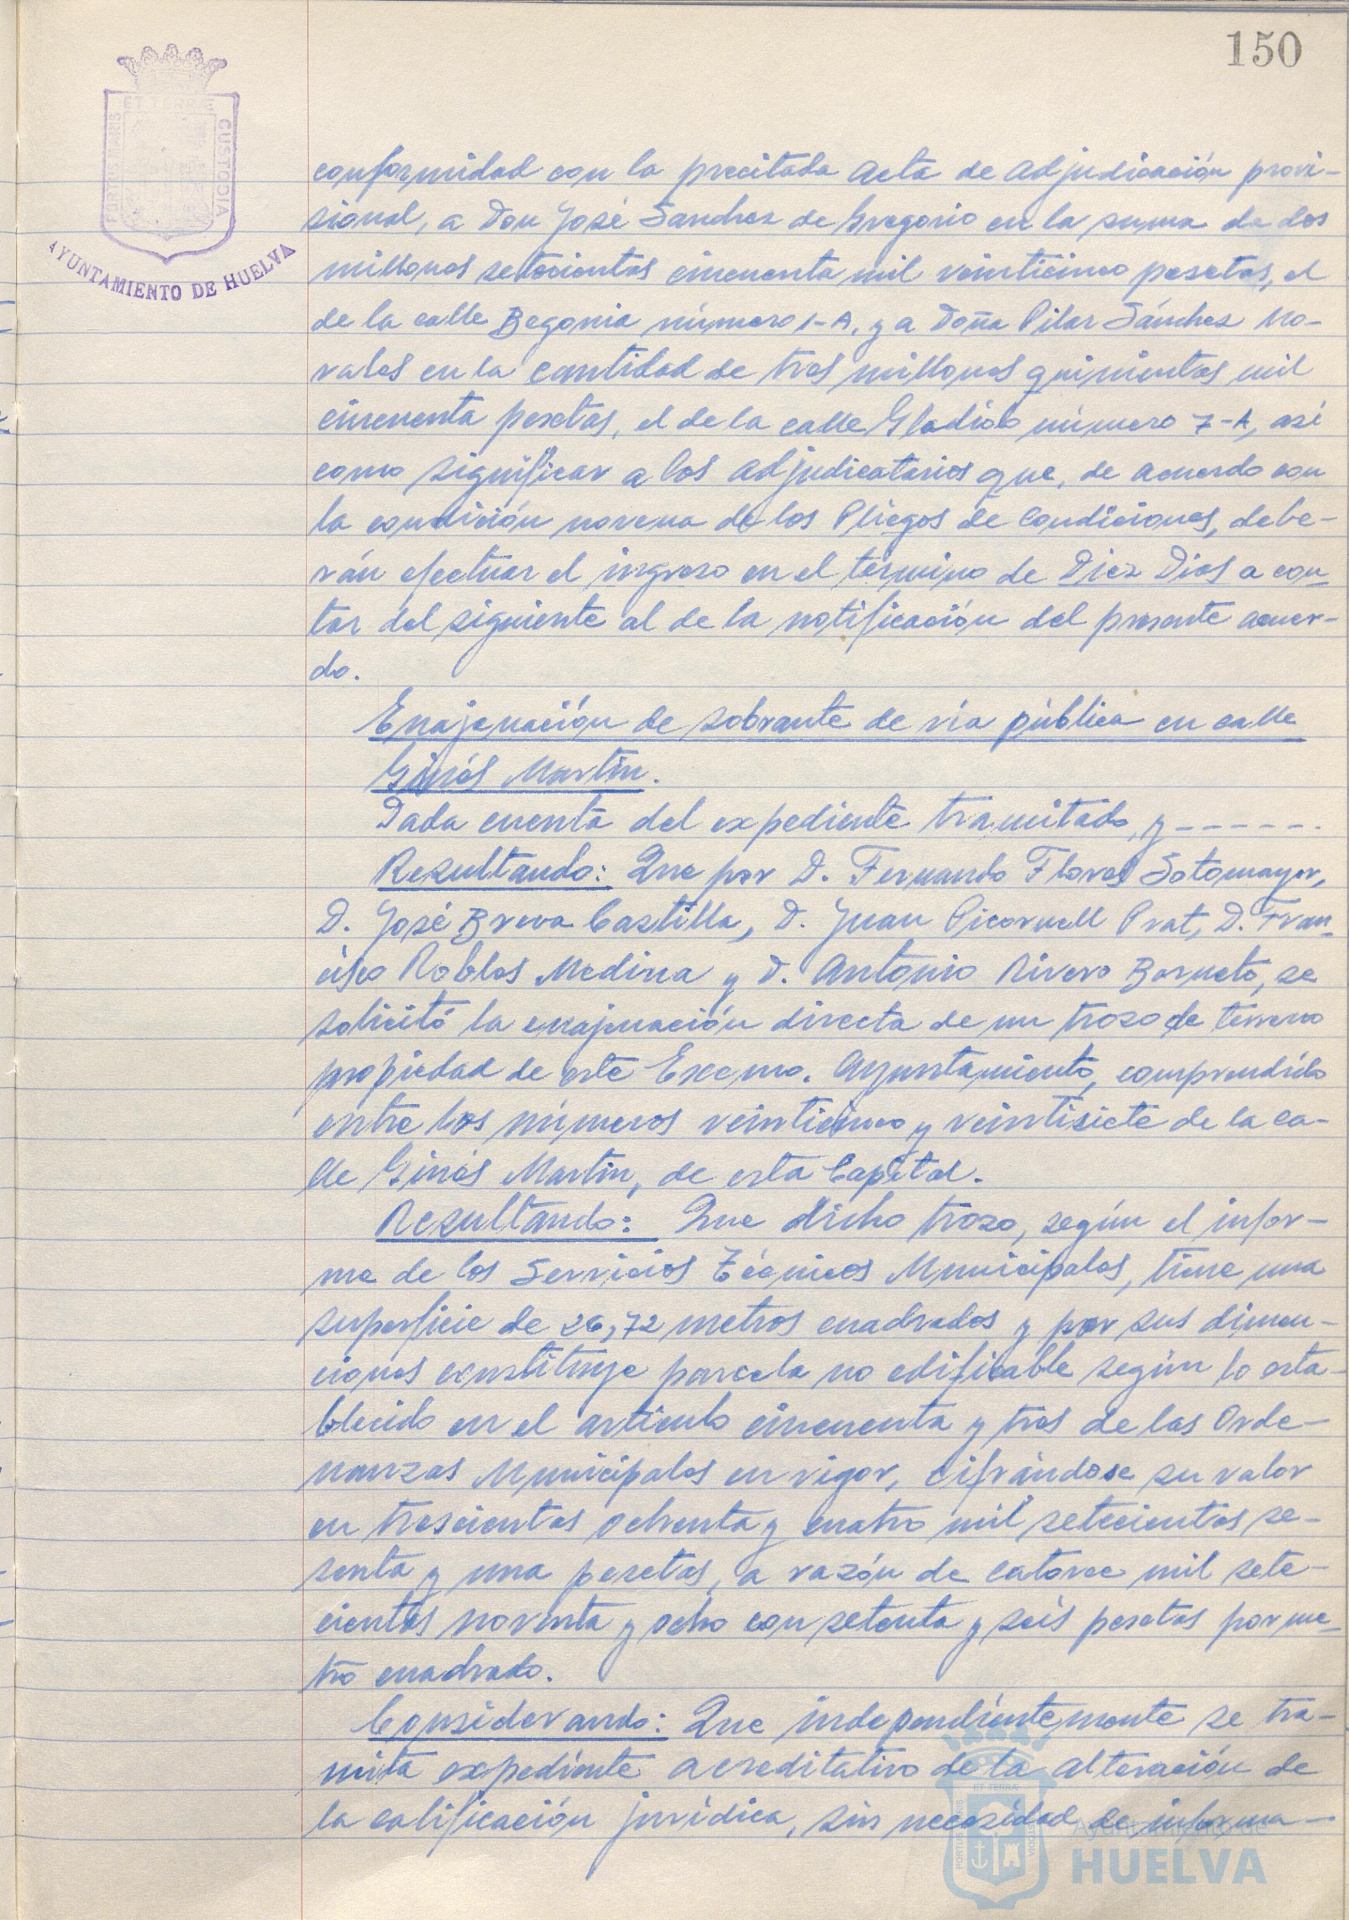 150
PORTUS MARIS ET TERRAE CUSTODIA
AYUNTAMIENTO DE HUELVA
conformidad con la precitada Acta de adjudicación provi-
sional, a Don José Sanchez de Gregorio en la suma de dos
millones setecientas cincuenta mil veinticinco pesetas, el
de la calle Begonia número 1-A, y a Doña Pilar Sánchez No-
vales en la cantidad de tres millones quinientas mil
cincuenta pesetas, el de la calle Gladiolo número 7-A, así
como significar a los adjudicatarios que, de acuerdo con
la condición novena de los Pliegos de Condiciones, debe-
rán efectuar el ingreso en el término de Diez Dias a con
tar del siguiente al de la notificación del presente acuer-
do.
Enajenación de sobrante de vía pública en calle
Ginés Martín.
Dada cuenta del expediente tramitado, y ------
Resultando: Que por D. Fernando Flores Sotomayor,
D. José Breva Castilla, D. Juan Picornell Prat, D. Fran-
cisco Robles Medina y D. Antonio Rivero Borneto, se
solicitó la enajenación directa de un trozo de terreno
propiedad de este Excmo. Ayuntamiento, comprendido
entre los números veinticinco y veintisiete de la ca-
lle Ginés Martín, de esta Capital.
Resultando: Que dicho trozo, según el infor-
me de los Servicios Técnicos Municipales, tiene una
superficie de 26,72 metros cuadrados y por sus dimen-
ciones constituye parcela no edificable según lo esta-
blecido en el artículo cincuenta y tres de las Orde-
nanzas Municipales en vigor, cifrándose su valor
en trescientas ochenta y cuatro mil setecientas se-
senta y una pesetas, a razón de catorce mil sete-
cientas noventa y ocho con setenta y seis pesetas por me-
tro cuadrado.
Considerando: Que independientemente se tra-
mita expediente acreditativo de la alteración de
la calificación jurídica, sin necesidad de informa-
PORTUS MARIS ET TERRAE CUSTODIA
Ayuntamiento de
HUELVA